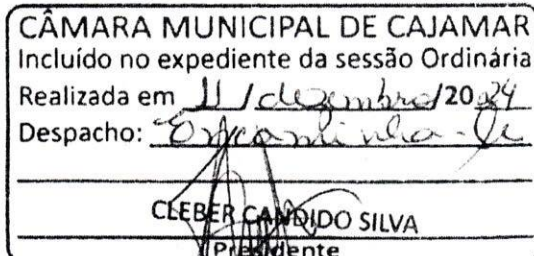 CÂMARA MUNICIPAL DE CAJAMAR
Incluído no expediente da sessão Ordinária
Realizada em 11 / dezembro / 20 24
Despacho: Encaminha-se
CLEBER CANDIDO SILVA
Presidente